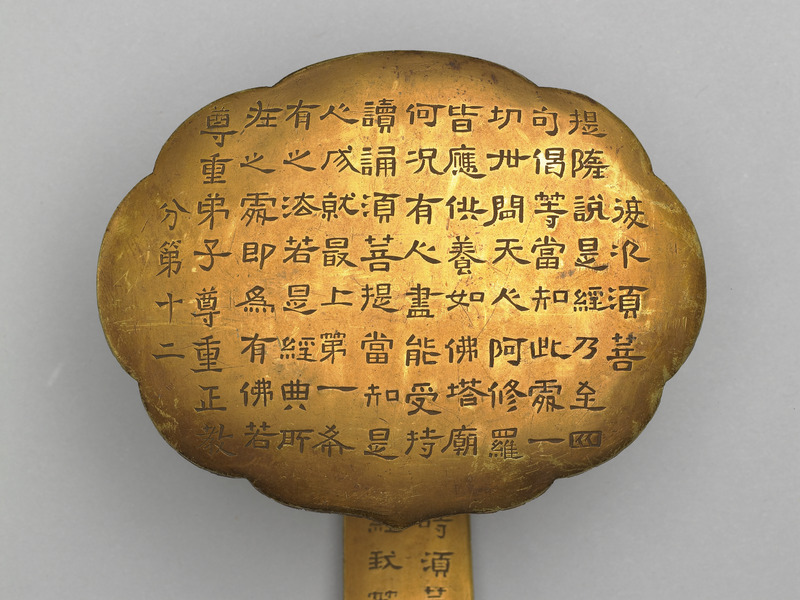 復次須菩
提隨說是經乃至四
句偈等當知此處一
切世間天人阿修羅
皆應供養如佛塔廟
何況有人盡能受持
讀誦須菩提當知是
人成就最上第一希
有之法若是經典所
在之處即為有佛若
尊重弟子尊重正教
分第十二
時須
經